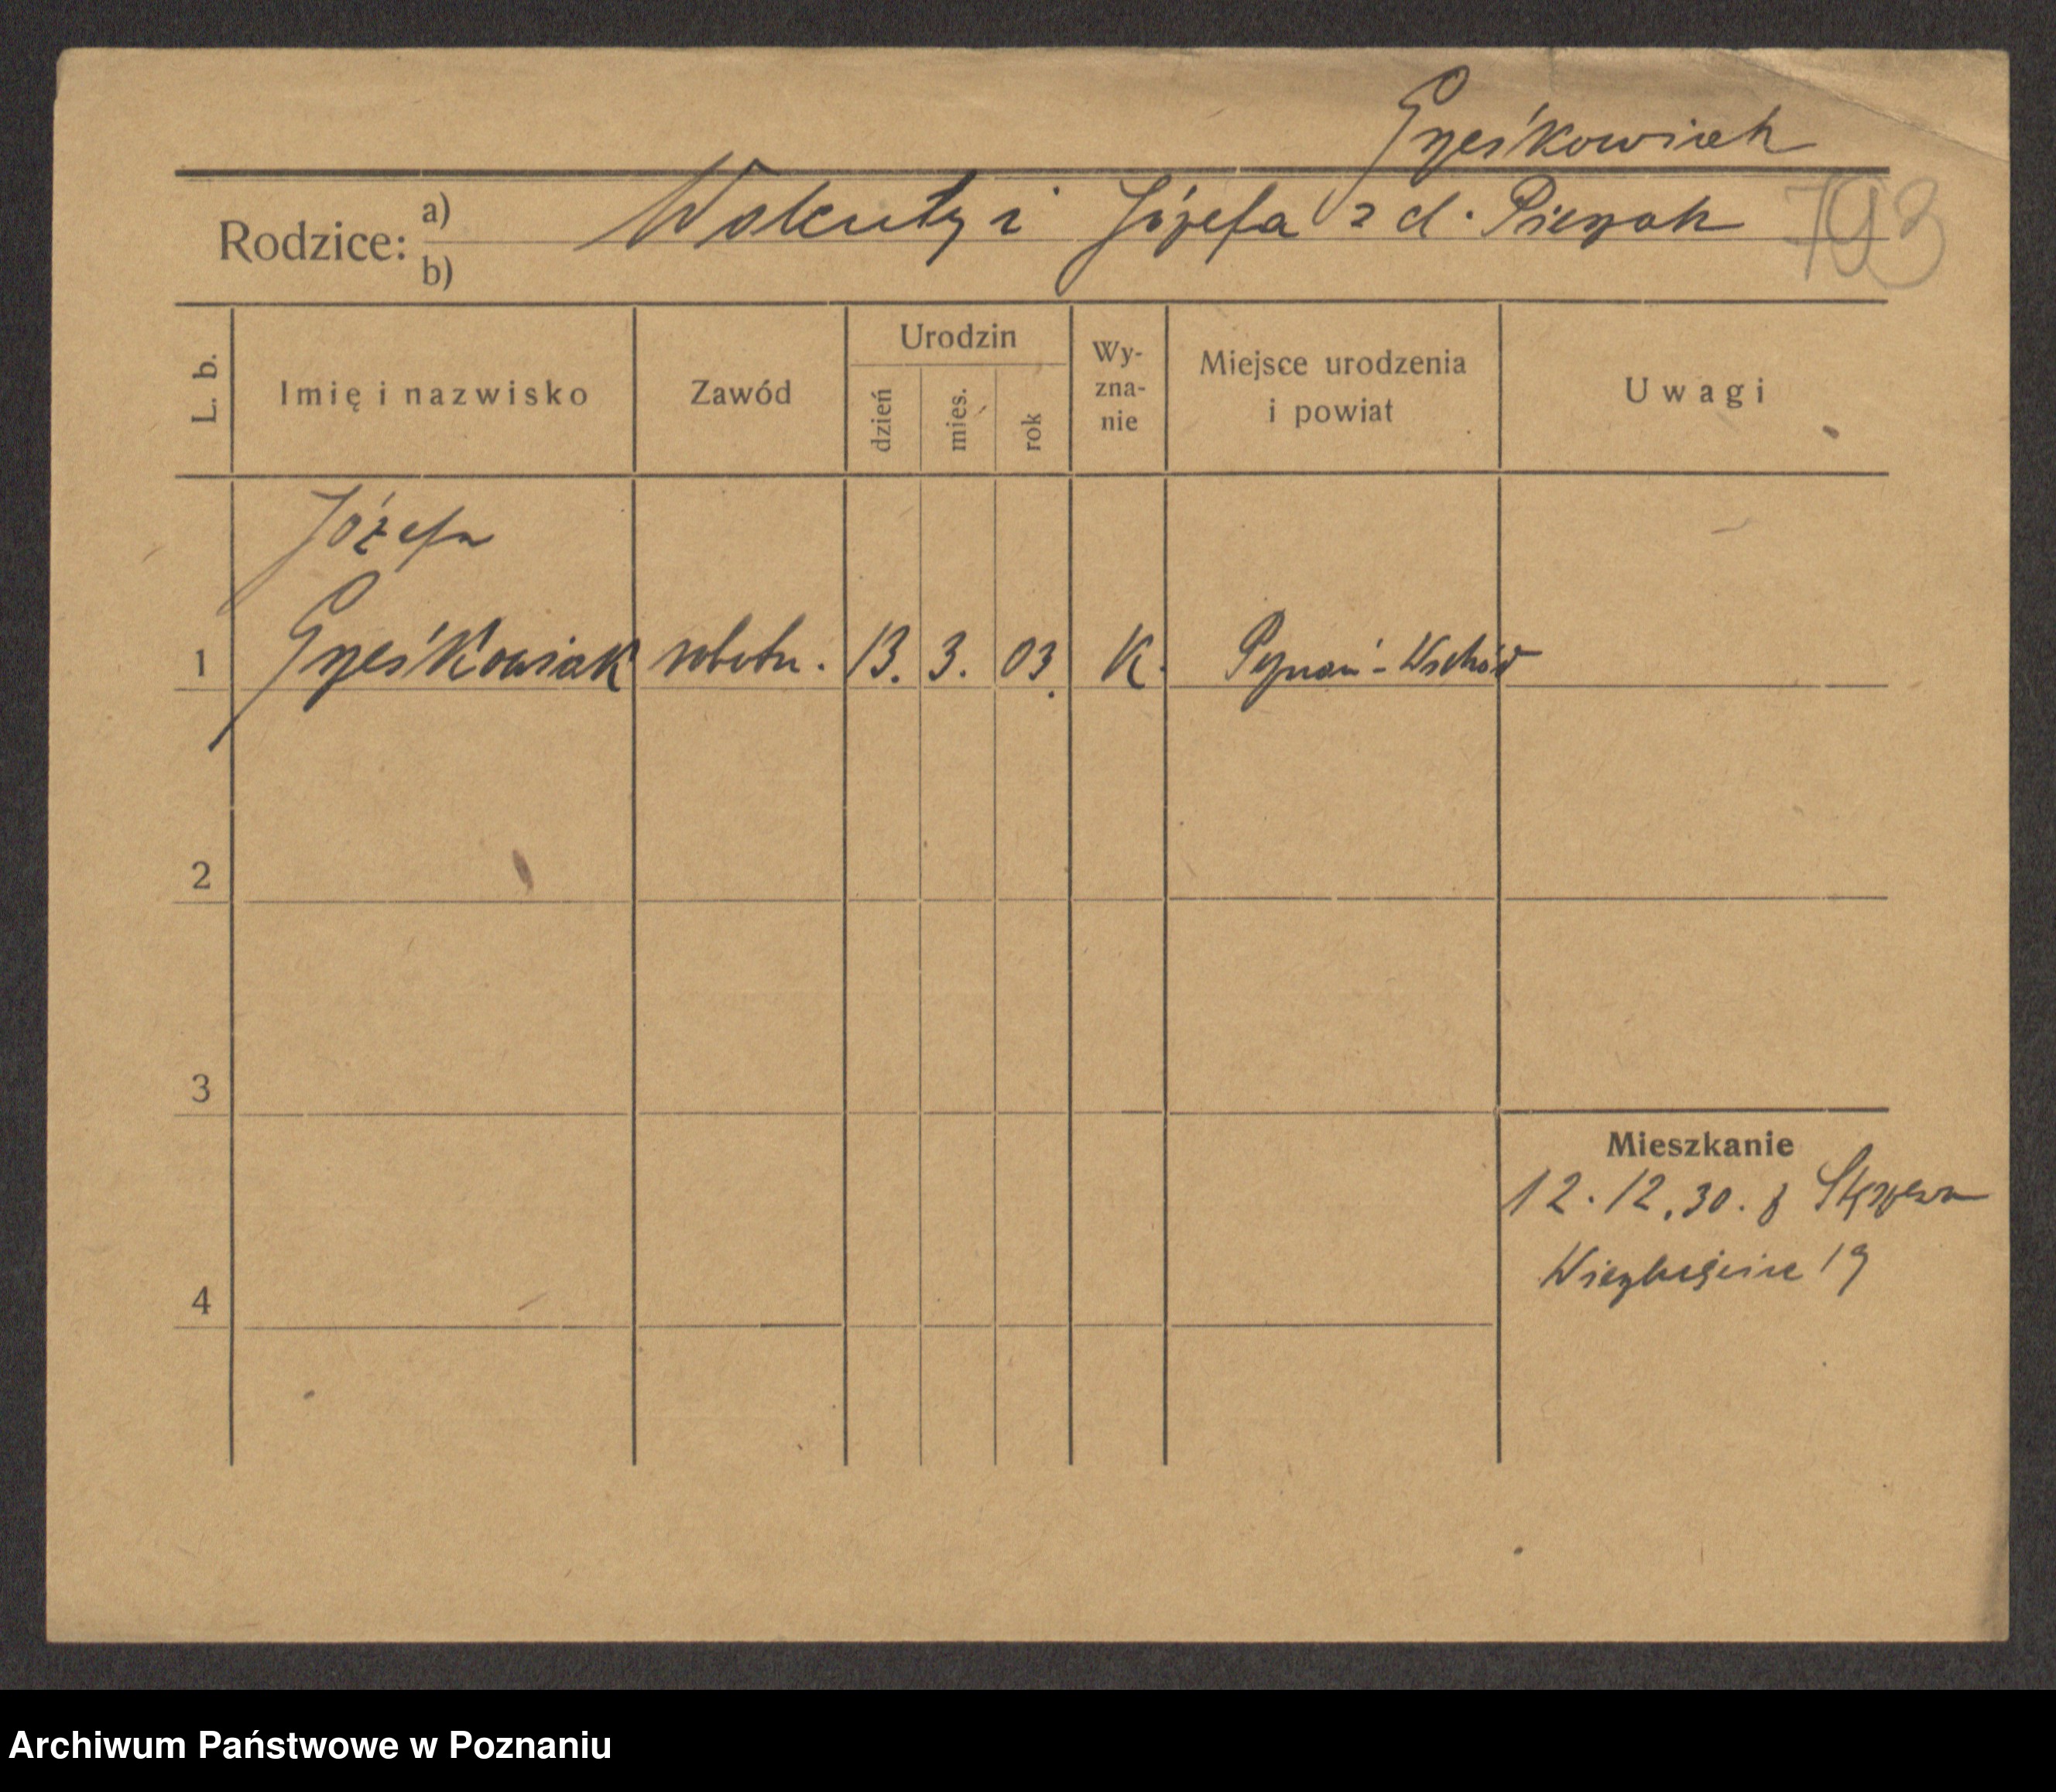 Grześkowiak
Rodzice: a) Walenty i Józefa z d. Pierzak
b)
793
L. b. Imię i nazwisko Zawód Urodzin dzień mies. rok Wy-zna-nie Miejsce urodzenia i powiat Uwagi
Józefa
1 Grześkowiak robotn. 13. 3. 03. K. Poznań-Wschód
2
3
Mieszkanie
12.12.30. z
4 19
Archiwum Państwowe w Poznaniu